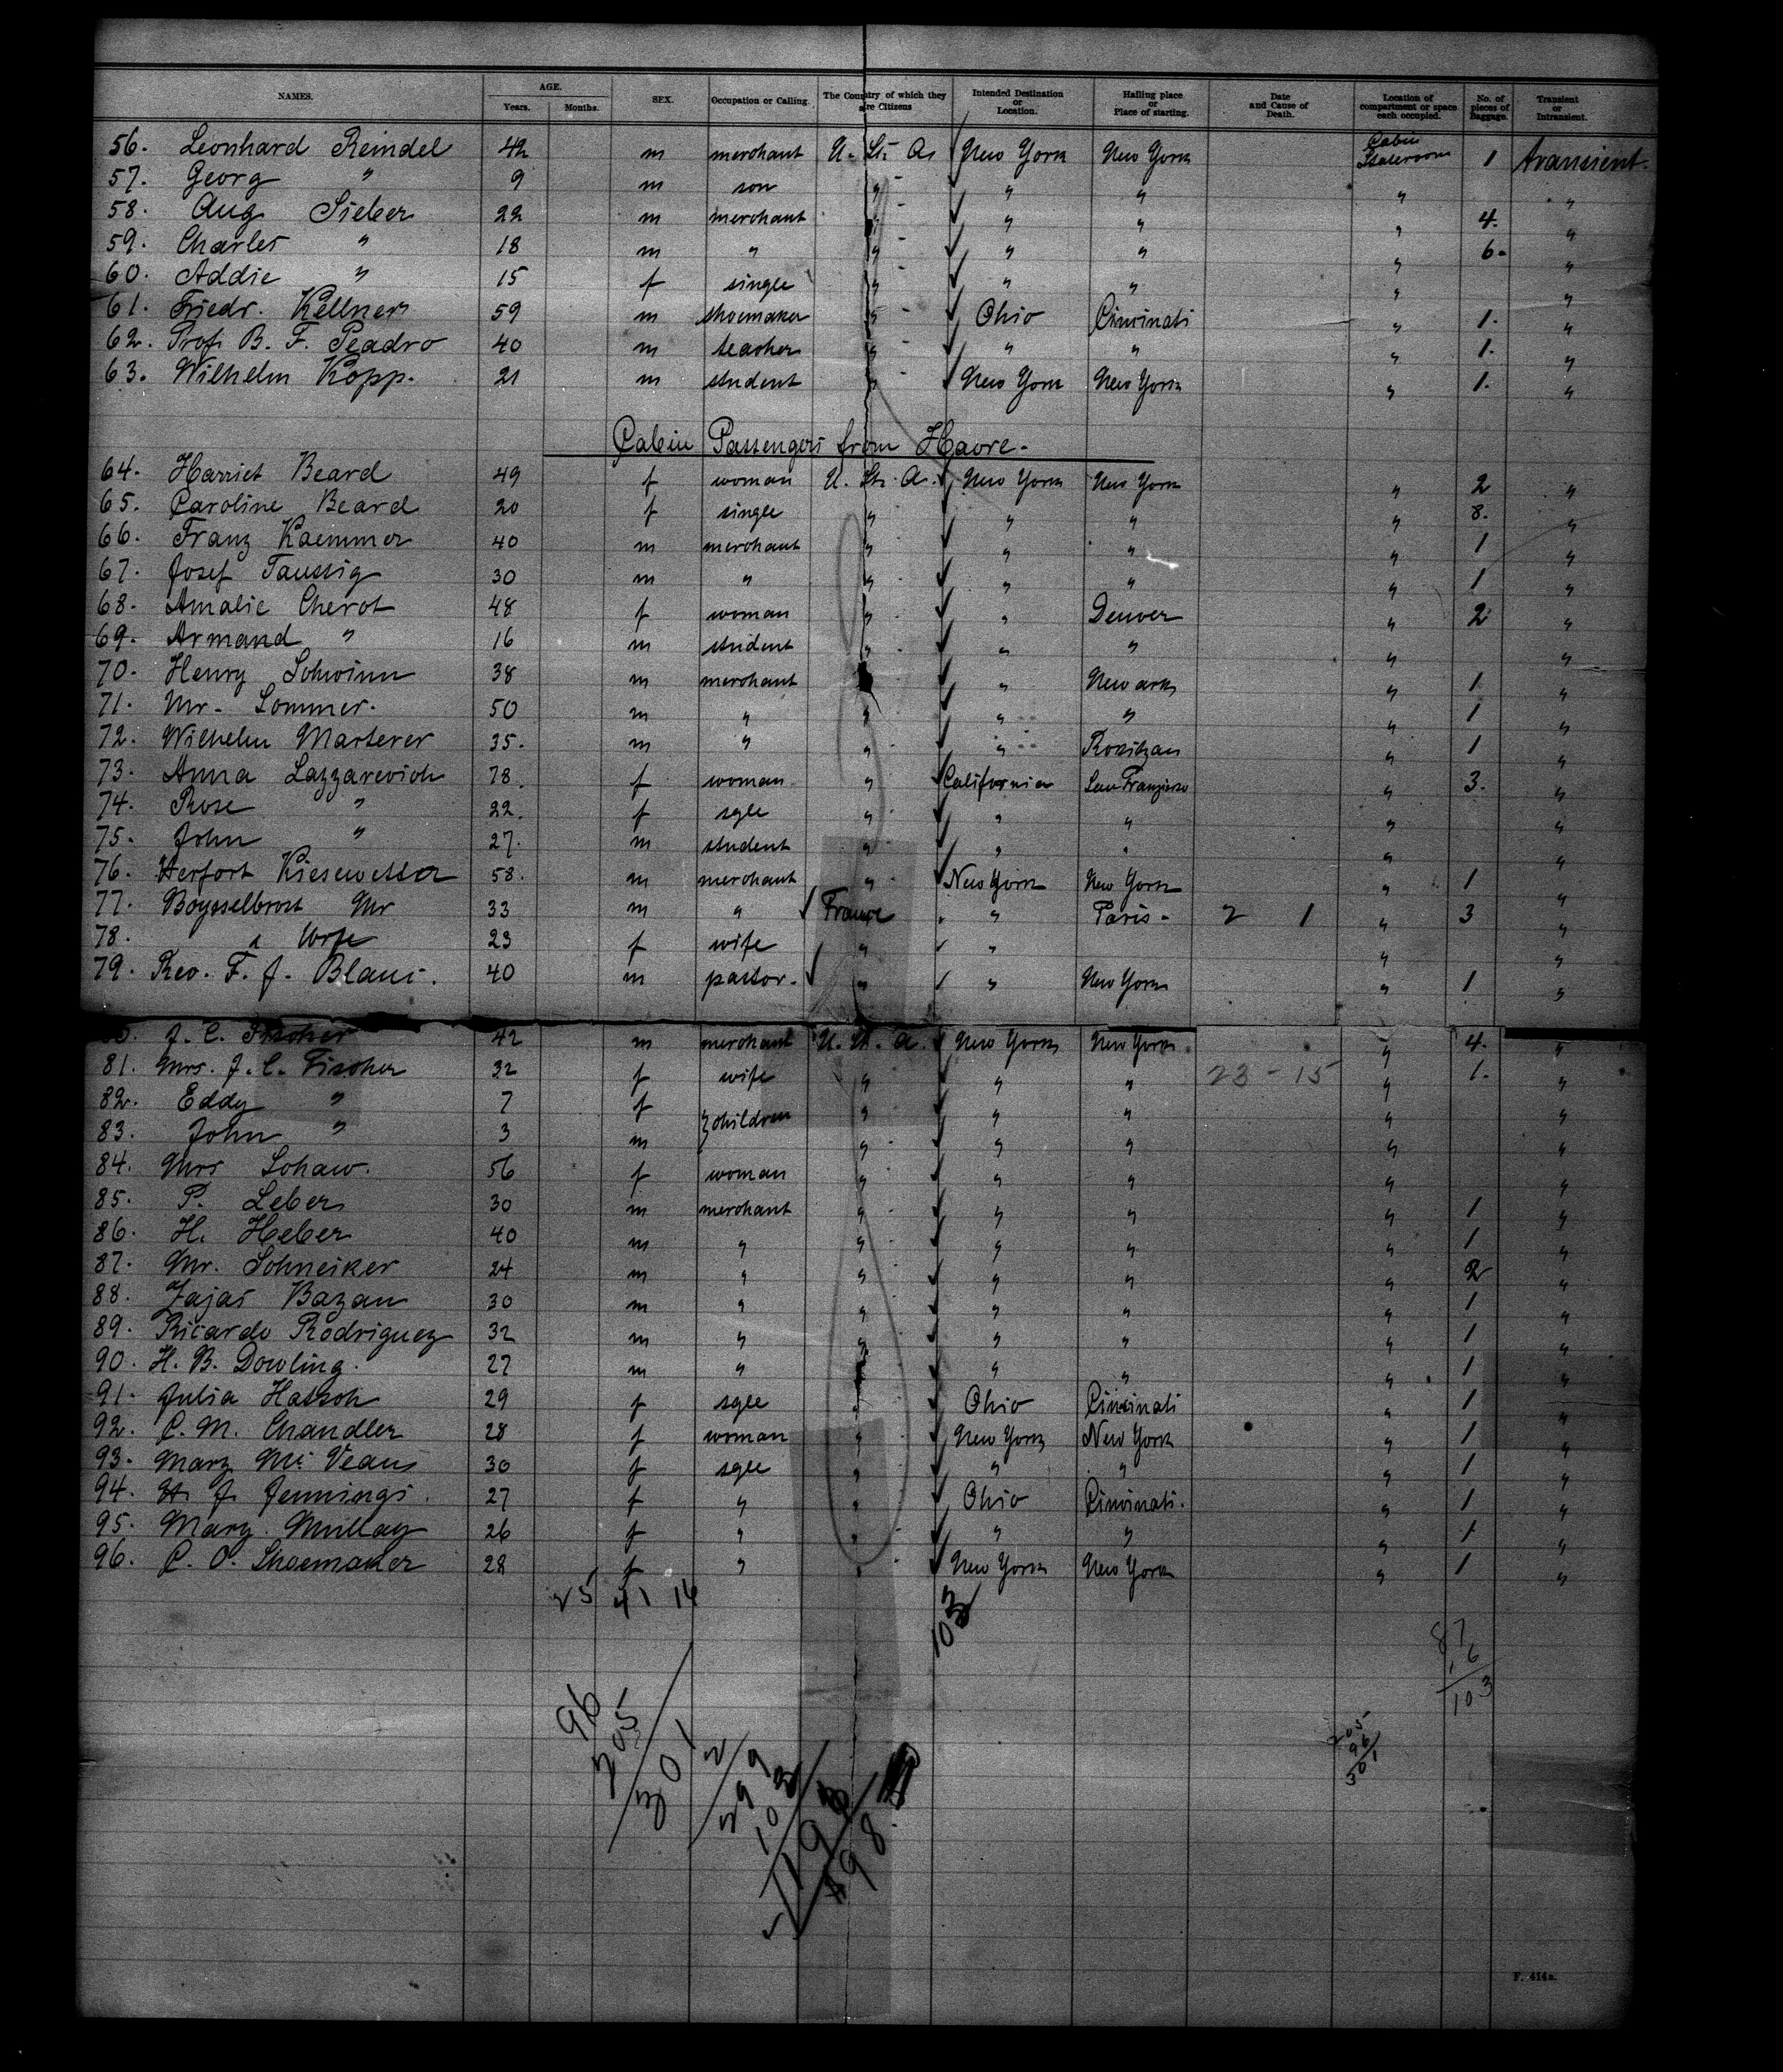 NAMES. AGE. Years. Months. SEX. Occupation or Calling. The Country of which they are Citizens Intended Destination or Location. Hailing place or Place of starting. Date and Cause of Death. Location of compartment or space each occupied. No. of pieces of Baggage. Transient or Intransient.
56. Leonhard Reindel 42 m merchant U. St. A. New York New York Cabin Stateroom 1 transient.
57. Georg " 9 m son " " " " "
58. Aug Sieber 22 m merchant " " " " 4. "
59. Charles " 18 m " " " " " 6. "
60. Addie " 15 f single " " " " "
61. Friedr. Kellner 59 m shoemaker " Ohio Cincinati " 1. "
62. Prof. B. F. Peadro 40 m teacher " " " " 1. "
63. Wilhelm Kopp. 21 m student " New York New York " 1. "
Cabin Passengers from Havre.
64. Harriet Beard 49 f woman U. St. A. New York New York " 2 "
65. Caroline Beard 20 f single " " " " 8. "
66. Franz Kaemmer 40 m merchant " " " " 1 "
67. Josef Taussig 30 m " " " " " 1 "
68. Amalie Cherot 48 f woman " " Denver " 2 "
69. Armand " 16 m student " " " " "
70. Henry Schwinn 38 m merchant " " Newark " 1 "
71. Mr. Sommer. 50 m " " " " " 1 "
72. Wilhelm Marterer 35. m " " " " 1 "
73. Anna Lazzarevich 78. f woman " California San Franzisco " 3. "
74. Rose " 22. f sgle " " " " "
75. John " 27. m student " " " " "
76. Herfort Kiesewetter 58. m merchant " New York New York " 1 "
77. Mr 33 m " France " Paris - 2 1 " 3 "
78. " Wife 23 f wife " " " "
79. Rev. F. J. 40 m pastor. " " New York " 1 "
J. C. Fischer 42 m merchant U. St. A. New York New York " 4. "
81. Mrs. J. C. Fischer 32 f wife " " " 23 - 15 " 1. "
82. Eddy " 7 f } children " " " " "
83. John " 3 m " " " " "
84. Mrs Schaw. 56 f woman " " " " "
85. P. Leber 30 m merchant " " " " 1 "
86. H. Heber 40 m " " " " " 1 "
87. Mr. Schneiker 24 m " " " " " 2 "
88. Zajas Bazan 30 m " " " " " 1 "
89. Ricardo Rodriguez 32 m " " " " " 1 "
90. H. B. Dowling. 27 m " " " " 1 "
91. Julia Hatsch 29 f sgle " Ohio Cincinati " 1 "
92. C. M. Chandler 28 f woman " New York New York " 1 "
93. Mary 30 f sgle " " " " 1 "
94. J. Jennings. 27 f " " Ohio Cincinati. " 1 "
95. Mary Mullay 26 f " " " " " 1 "
96. C. O. Shoemaker 28 f " " New York New York " 1 "
25 41 14
103
87
16
103
96
205
301
205
96
301
2
99
F. 414a.